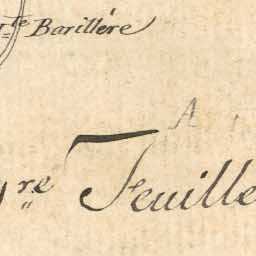 te Barillére
A
re Feuille